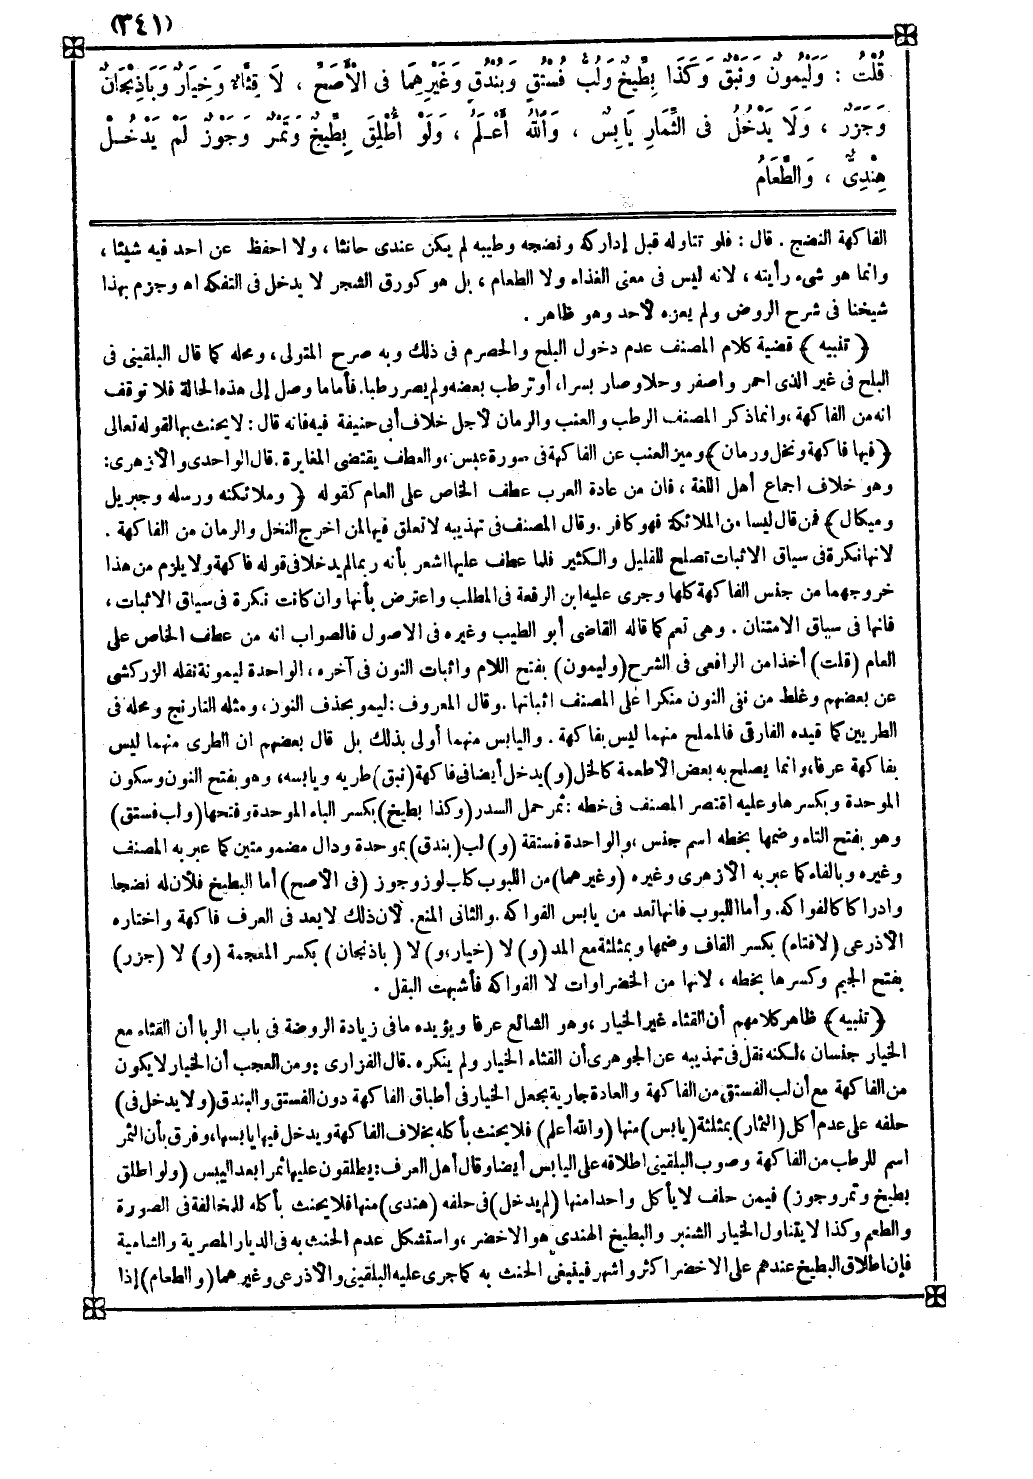 (٣٤١)
قُلْتُ : وَلَيْمُونٌ وَنَبْقٌ وَكَذَا بِطِّيخٌ وَلُبُّ فُسْتُقٍ وَبُنْدُقٍ وَغَيْرِهِمَا فِى الْأَصَحِّ ، لَا قِثَّاءٌ وَخِيَارٌ وَبَاذِنْجَانٌ
وَجَزَرٌ ، وَلَا يَدْخُلُ فِى الثِّمَارِ يَابِسٌ ، وَاللهُ أَعْـلَمُ ، وَلَوْ أُطْلِقَ بِطِّيخٌ وَتَمْرٌ وَجَوْزٌ لَمْ يَدْخُـلْ
هِنْدِىٌّ ، وَالطَّعَامُ
الفاكهة النضج . قال : فلو تناوله قبل إدراكه ونضجه وطيبه لم يكن عندى حانثا ، ولا احفظ عن احد فيه شيئا ،
وانما هو شىء رأيته ، لانه ليس فى معنى الغذاء ولا الطعام ، بل هو كورق الشجر لا يدخل فى التفكه اه وجزم بهذا
شيخنا فى شرح الروض ولم يعزه لأحد وهو ظاهر .
﴿ تنبيه ﴾ قضية كلام المصنف عدم دخول البلح والحصرم فى ذلك وبه صرح المتولى، ومحله كما قال البلقينى فى
البلح فى غير الذى احمر واصفر وحلا وصار بسرا، أو ترطب بعضه ولم يصر رطبا. فأما ما وصل إلى هذه الحالة فلا توقف
انه من الفاكهة ،وانما ذكر المصنف الرطب والعنب والرمان لأجل خلاف أبى حنيفة فيه فانه قال : لا يحنث بها لقوله تعالى
﴿ فيها فاكهة ونخل ورمان ﴾ وميز العنب عن الفاكهة فى سورة عبس ،والعطف يقتضى المغايرة .قال الواحدى والأزهرى:
وهو خلاف اجماع أهل اللغة ، فان من عادة العرب عطف الخاص على العام كقوله ﴿ وملائكته ورسله وجبريل
وميكال ﴾ فمن قال ليسا من الملائكة فهو كافر .وقال المصنف فى تهذيبه لا تعلق فيها لمن اخرج النخل والرمان من الفاكهة .
لانها نكرة فى سياق الاثبات تصلح للقليل والكثير فلما عطف عليها اشعر بأنه ربما لم يدخلا فى قوله فاكهة ولا يلزم من هذا
خروجهما من جنس الفاكهة كلها وجرى عليه ابن الرفعة فى المطلب واعترض بأنها وان كانت نكرة فى سياق الاثبات ،
فانها فى سياق الامتنان . وهى تعم كما قاله القاضى أبو الطيب وغيره فى الاصول فالصواب انه من عطف الخاص على
العام (قلت) أخذا من الرافعى فى الشرح (وليمون) بفتح اللام واثبات النون فى آخره ، الواحدة ليمونة نقله الزركشى
عن بعضهم وغلط من نفى النون منكرا على المصنف اثباتها .وقال المعروف :ليمو بحذف النون، ومثله النارنج ومحله فى
الطريين كما قيده الفارقى فالمملح منهما ليس بفاكهة . واليابس منهما أولى بذلك بل قال بعضهم ان الطرى منهما ليس
بفاكهة عرفا،وانما يصلح به بعض الأطعمة كالخل (و) يدخل أيضا فى فاكهة (نبق) طريه ويابسه، وهو بفتح النون وسكون
الموحدة وبكسرها وعليه اقتصر المصنف فى خطه : ثمر حمل السدر (وكذا بطيخ) بكسر الباء الموحدة وفتحها (ولب فستق)
وهو بفتح التاء وضمها بخطه اسم جنس ،والواحدة فستقة (و) لب (بندق) بموحدة ودال مضمومتين كما عبر به المصنف
وغيره وبالفاء كما عبر به الأزهرى وغيره (وغيرهما) من اللبوب كلب لوز وجوز (فى الأصح) أما البطيخ فلأن له نضجا
وادراكا كالفواكه. وأما اللبوب فانها تعد من يابس الفواكه .والثانى المنع. لأن ذلك لا يعد فى العرف فاكهة واختاره
الأذرعى (لا قثاء) بكسر القاف وضمها وبمثلثة مع المد (و) لا (خيار،و) لا (باذنجان) بكسر المعجمة (و) لا (جزر)
بفتح الجيم وكسرها بخطه ، لانها من الخضراوات لا الفواكه فأشبهت البقل .
﴿ تنبيه ﴾ ظاهر كلامهم أن القثاء غير الخيار ،وهو الشائع عرفا ويؤيده ما فى زيادة الروضة فى باب الربا أن القثاء مع
الخيار جنسان ،لكنه نقل فى تهذيبه عن الجوهرى أن القثاء الخيار ولم ينكره .قال الفزارى : ومن العجب أن الخيار لا يكون
من الفاكهة مع أن لب الفستق من الفاكهة والعادة جارية بجعل الخيار فى أطباق الفاكهة دون الفستق والبندق (ولا يدخل فى)
حلفه على عدم أكل (الثمار) بمثلثة (يابس) منها (والله أعلم) فلا يحنث بأكله بخلاف الفاكهة ويدخل فيها يابسها،وفرق بأن الثمر
اسم للرطب من الفاكهة وصوب البلقينى اطلاقه على اليابس أيضا وقال أهل العرف: يطلقون عليها ثمرا بعد اليبس (ولو اطلق
بطيخ وتمر وجوز) فيمن حلف لا يأكل واحدا منها (لم يدخل) فى حلفه (هندى) منها فلا يحنث بأكله للمخالفة فى الصورة
والطعم وكذا لا يتناول الخيار الشنبر والبطيخ الهندى هو الاخضر ،واستشكل عدم الحنث به فى الديار المصرية والشامية
فإن اطلاق البطيخ عندهم على الاخضر اكثر واشهر فينبغى الحنث به كما جرى عليه البلقينى والأذرعى وغيرهما (والطعام) إذا